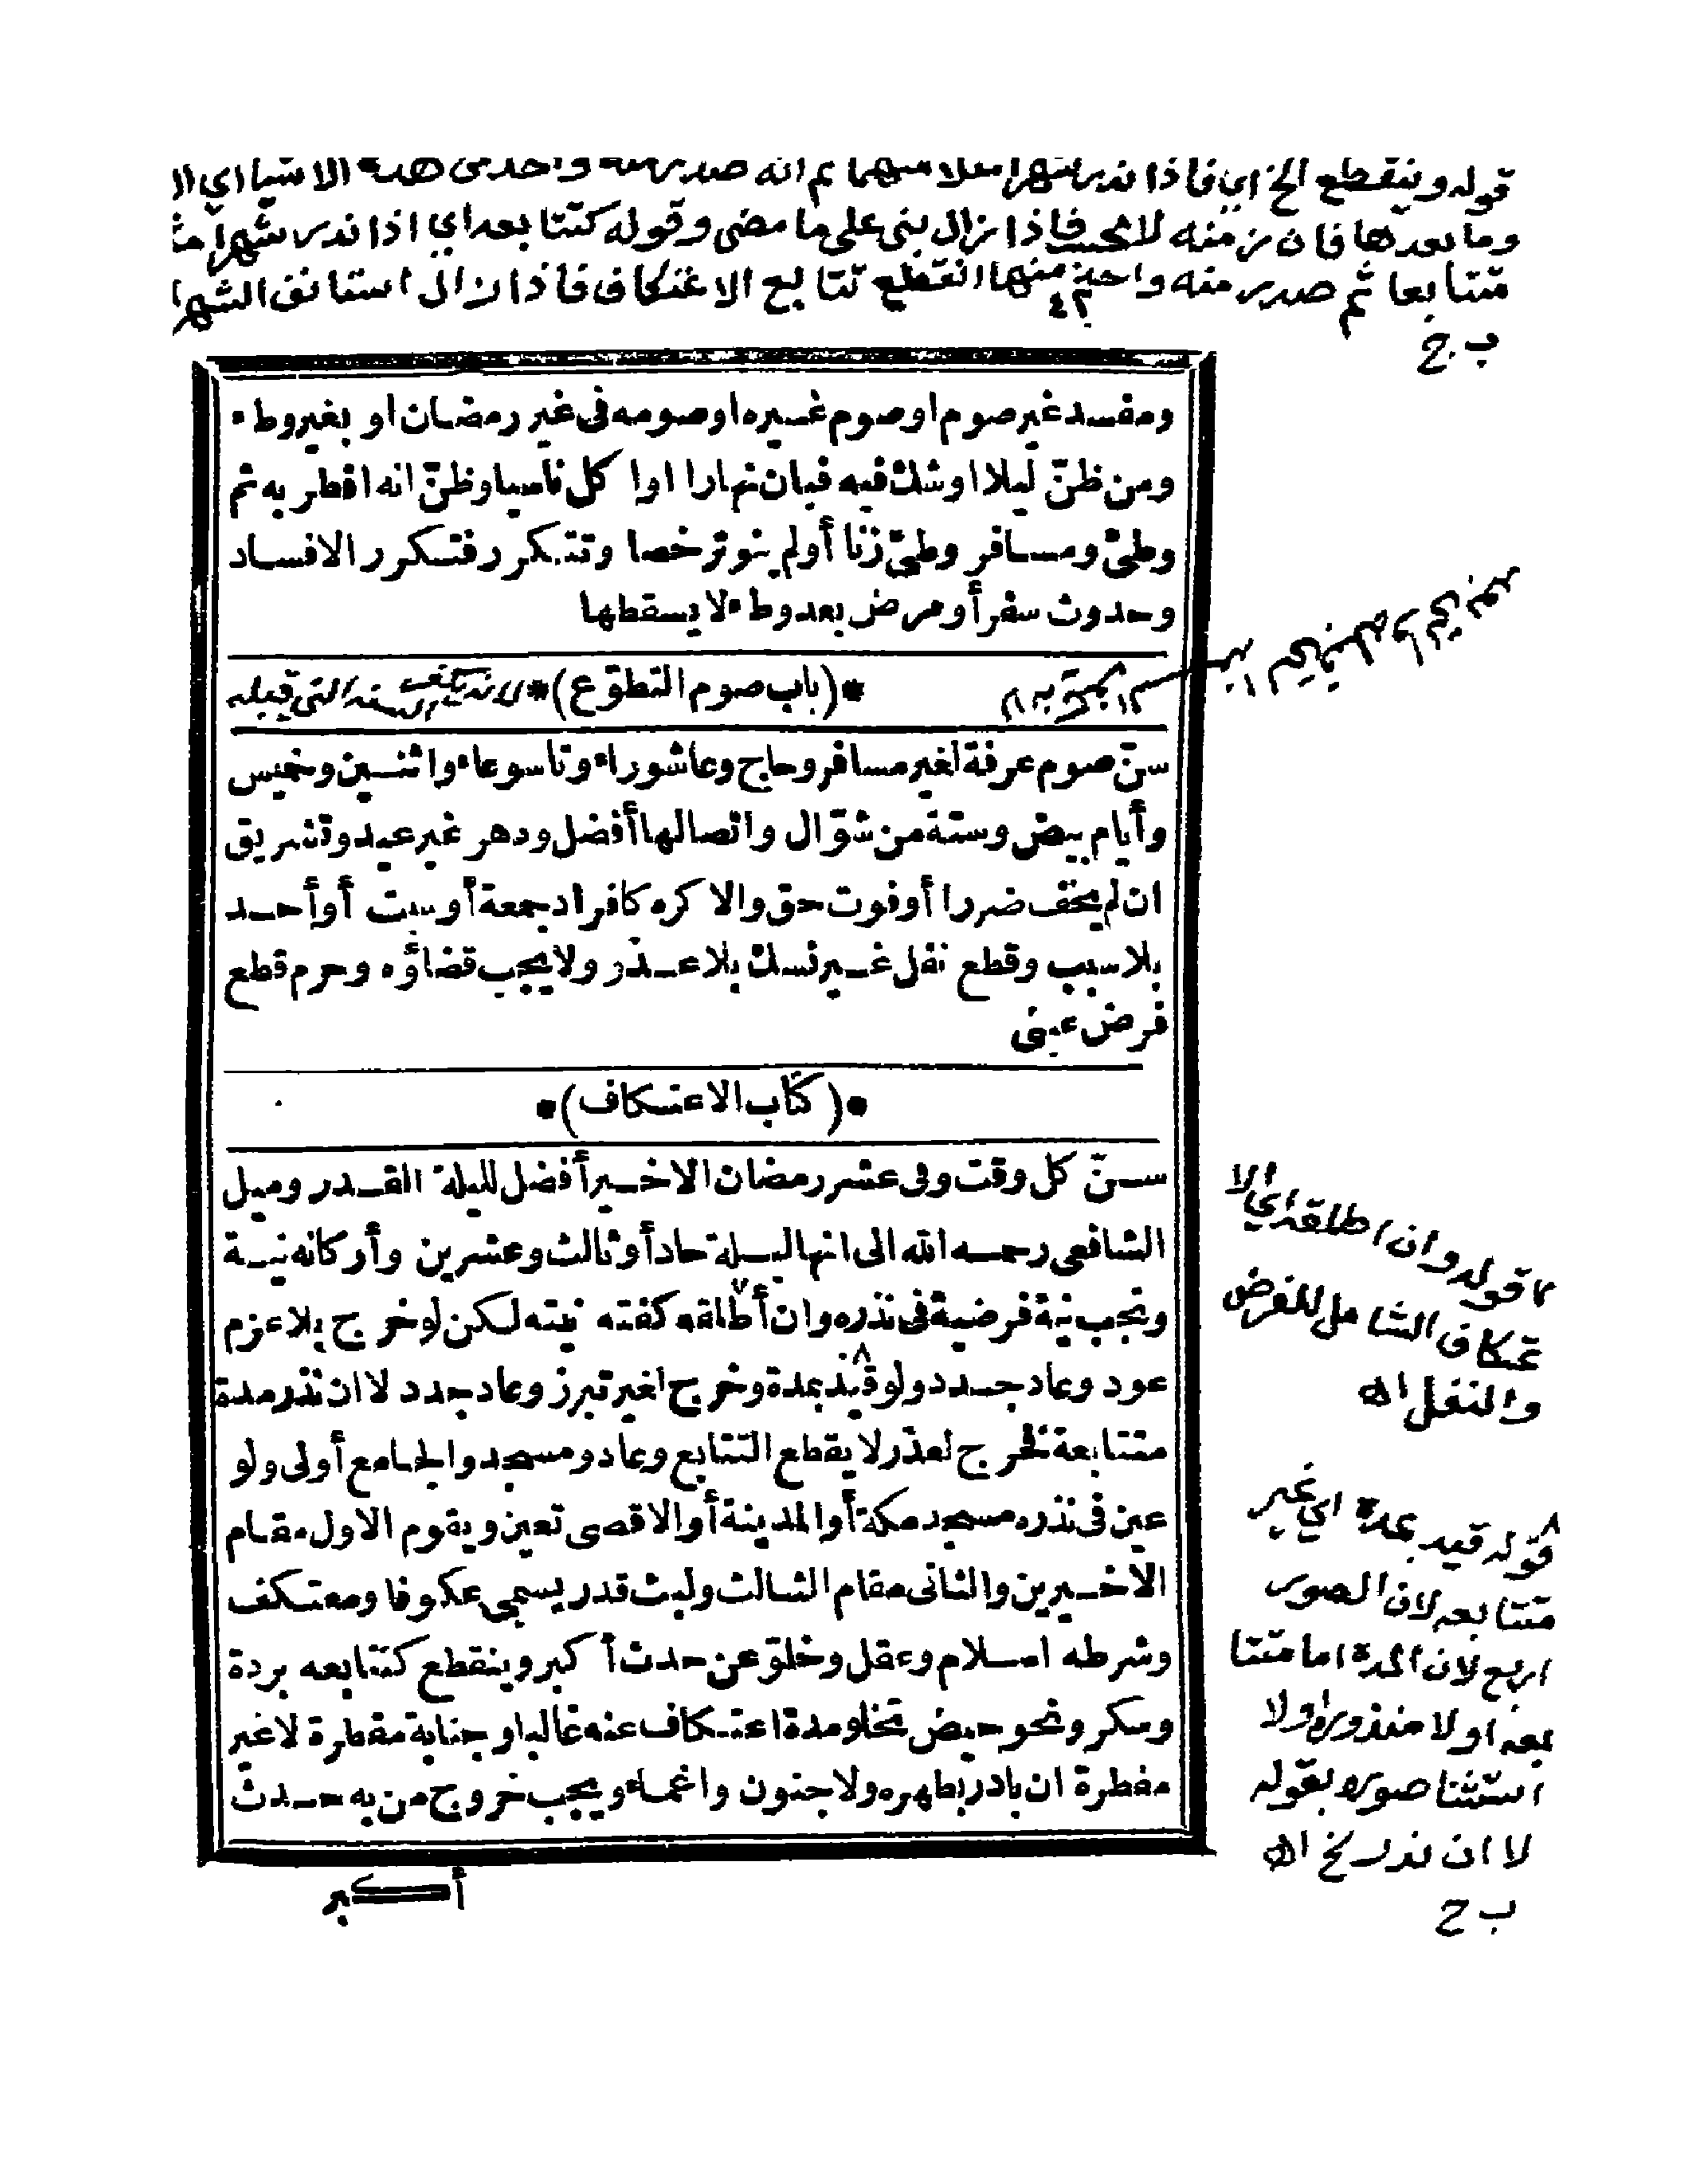 قوله وينقطع الخ اي فاذا نذر شهرا مثلا مبهما ثم انه صدر منه واحد من هذه الاشيا اي
وما بعدها فان زمنه لا يحسب فاذا زال بنى على ما مضى وقوله كتتابعه اي اذا نذر شهرا
متتابعا ثم صدر منه واحد منها انقطع تتابع الاعتكاف فاذا زال استانف الشهر
ب ج
ومفسد غير صوم او صوم غيره او صومه فى غير رمضان او بغير وطء
ومن ظنّ ليلا او شك فيه فبان نهارا او اكل ناسيا وظنّ انه افطر به ثم
وطئ ومسافر وطئ زنا أو لم ينو ترخصا وتتكرر فتكرر الافساد
وحدوث سفر أو مرض بعد وطء لا يسقطها
*(باب صوم التطوّع)*
سنّ صوم عرفة لغير مسافر وحاج وعاشوراء وتاسوعاء واثنين وخميس
وأيام بيض وستة من شوّال واتصالها أفضل ودهر غير عيد وتشريق
ان لم يخف ضررا أو فوت حق والا كره كافراد جمعة أو سبت أو أحد
بلا سبب وقطع نفل غير نسك بلا عذر ولا يجب قضاؤه وحرم قطع
فرض عينى
*(كتاب الاعتكاف)*
سنّ كل وقت وفى عشر رمضان الاخير أفضل لليلة القدر وميل
الشافعى رحمه الله الى انها ليلة حاد أو ثالث وعشرين وأركانه نية
وتجب نية فرضية فى نذره وان أطلقه كفته نيته لكن لو خرج بلا عزم
عود وعاد جدد ولو قيد بمدة وخرج لغير تبرز وعاد جدد لا ان نذر مدة
متتابعة فخرج لعذر لا يقطع التتابع وعاد ومسجد والجامع أولى ولو
عين فى نذره مسجد مكة أو المدينة أو الاقصى تعين ويقوم الاول مقام
الاخيرين والثانى مقام الثالث ولبث قدر يسمى عكوفا ومعتكف
وشرطه اسلام وعقل وخلوّ عن حدث أكبر وينقطع كتتابعه بردة
وسكر ونحو حيض تخلو مدة اعتكاف عنه غالبا وجنابة مفطرة لا غير
مفطرة ان بادر بطهره ولا جنون واغماء ويجب خروج من به حدث
أكبر
قوله وان اطلقه اي الا
عتكاف الشامل للفرض
والنفل اه
٨ قوله قيد بمدة اي غير
متتابعه لان الصور
اربع لان المدة اما متتا
بعه او لا منذورة او لا
استثنا صوره بقوله
لا ان نذر الخ اه
ب ج